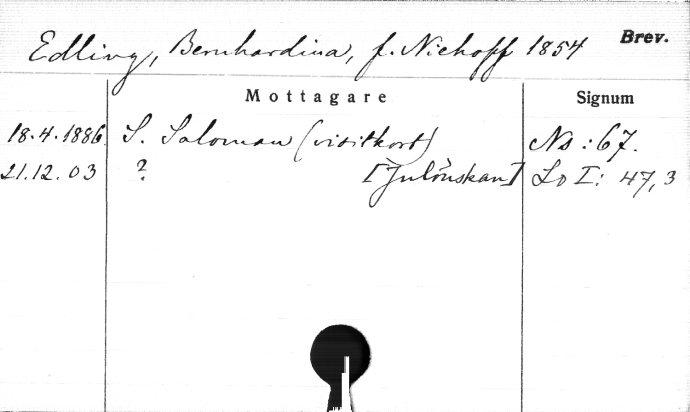 Edling, Bernhardina, f. Niehoff 1854 Brev.
Mottagare Signum
18.4.1886 S. Saloman (visitkort) Ns:67.
21.12.03 ? [Julönskan] Ld I: 47,3